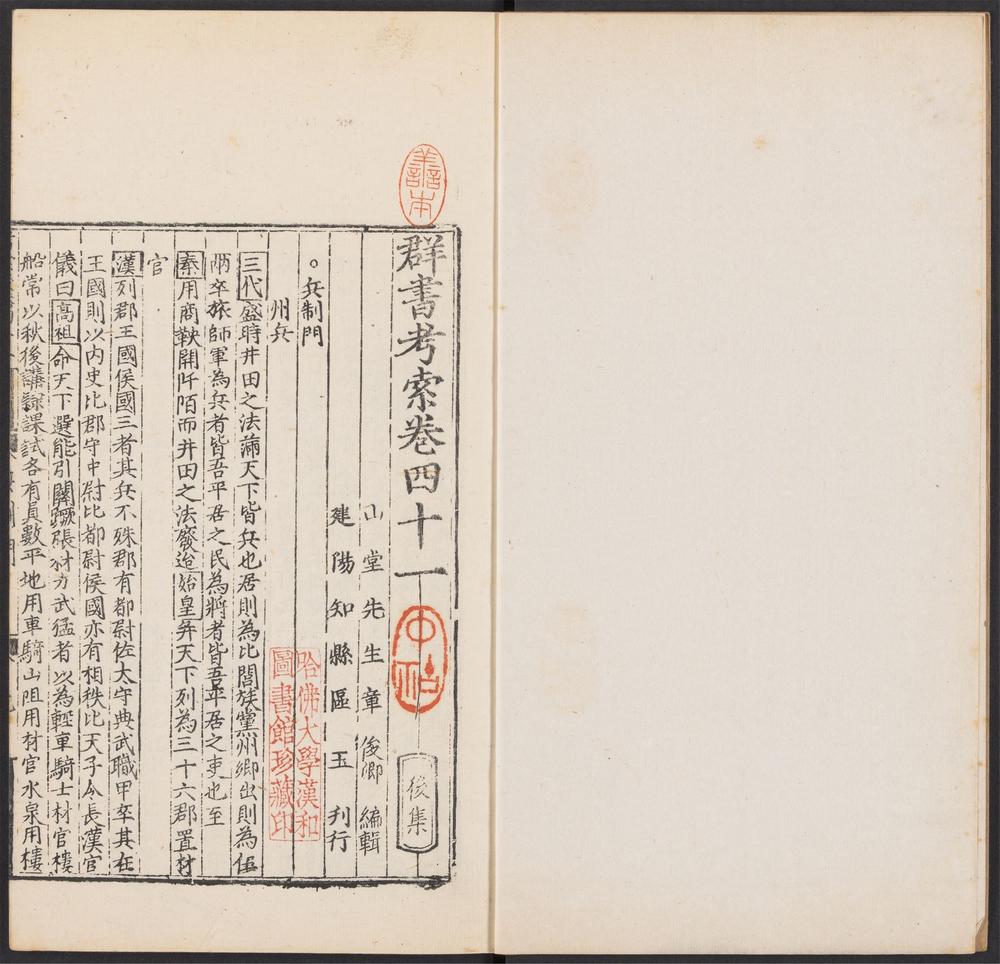 善本
群書考索卷四十一
後集
山堂先生章俊卿編輯
建陽知縣區玉刊行
哈佛大學漢和
圖書館珍藏印
。兵制門
州兵
三代盛時井田之法滿天下皆兵也居則為比閭族黨州鄉出則為伍
兩卒旅師軍為兵者皆吾平居之民為將者皆吾平居之吏也至
秦用商鞅開阡陌而井田之法廢迨始皇并天下列為三十六郡置材
官
漢列郡王國侯國三者其兵不殊郡有都尉佐太守典武職甲卒其在
王國則以內史比郡守中尉比都尉侯國亦有相秩比天子令長漢官
儀曰高祖命天下選能引關蹶張材力武猛者以為輕車騎士材官樓
船常以秋後講肄課試各有員數平地用車騎山阻用材官水泉用樓